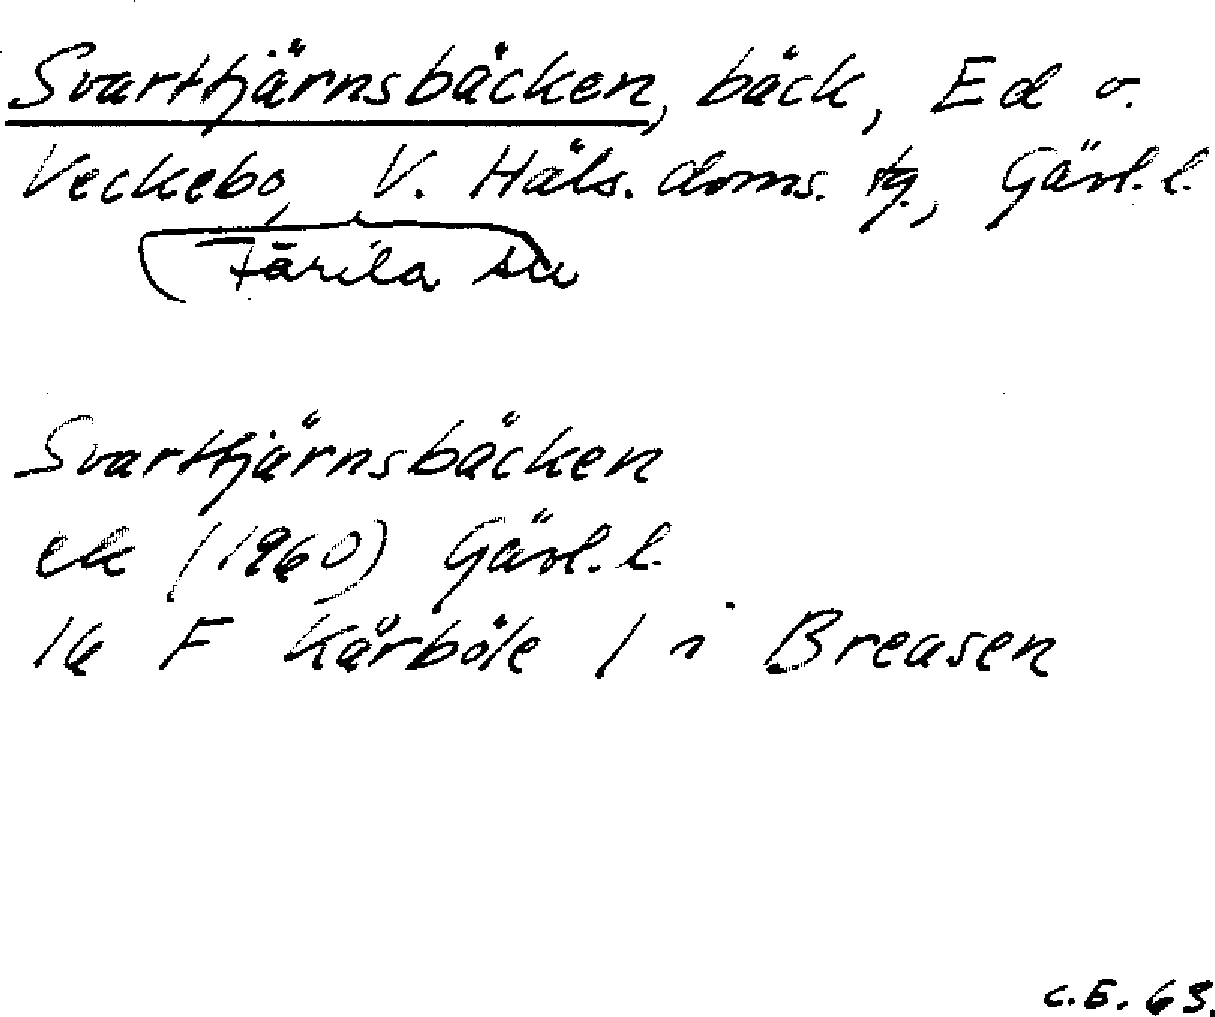 Svarttjärnsbäcken, bäck, Ed o.
Veckebo, V. Häls. doms. tg., Gävl. l.
Färila sn
Svarttjärnsbäcken
ek (1960) Gävl. l.
16 F Kårböle 1 i Breasen
C.E. 63.